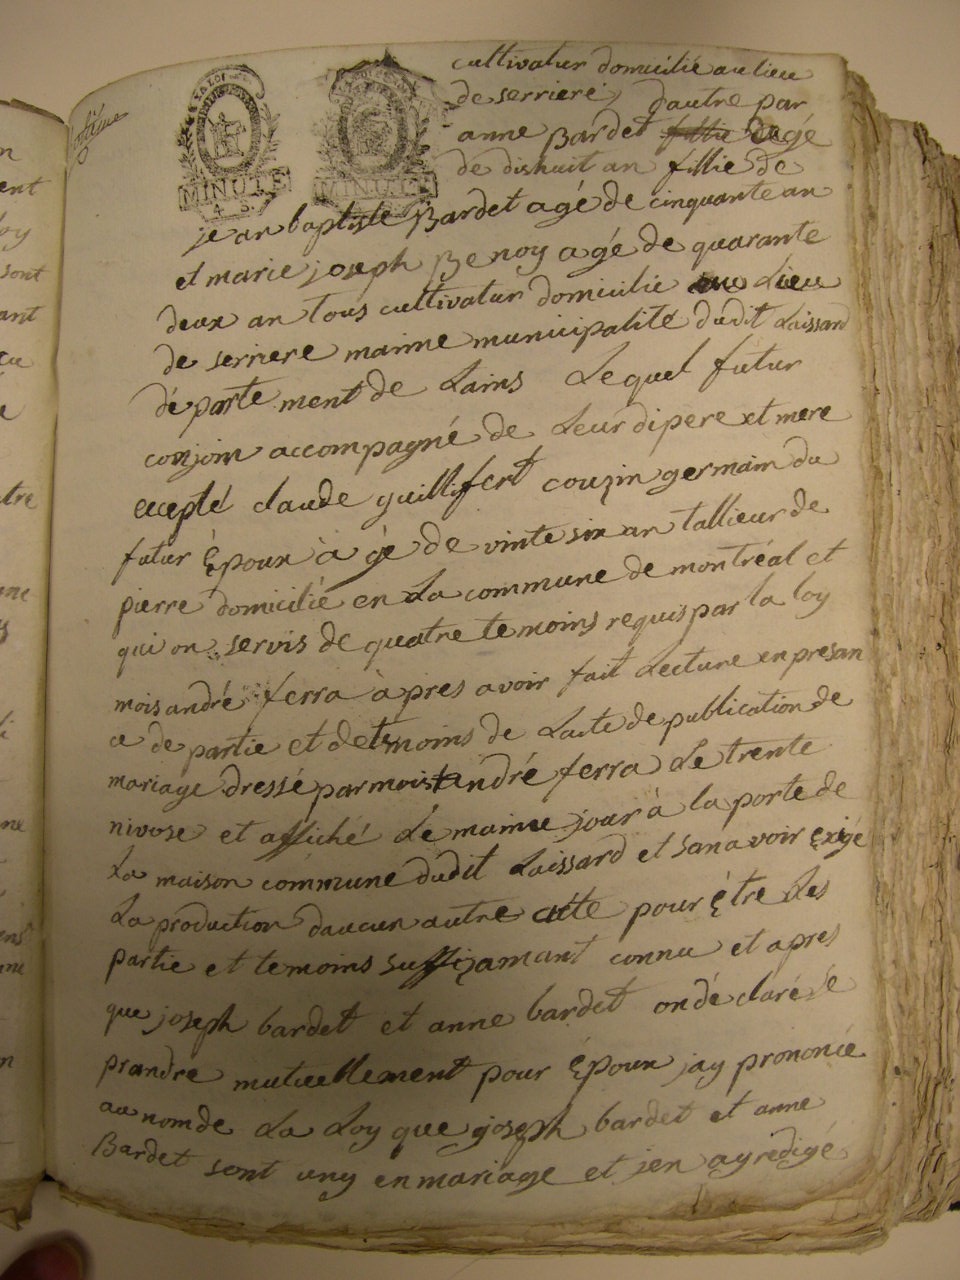 cultivatur domicilié au lieu
de serriere, dautre par
anne Bardet fillie agé
de dishuit an fillie de
LA LOI
MINUTE
MINUTE
jean baptiste Bardet agé de cinquante an
et marie joseph Benoy agé de quarante
deux an tous cultivatur domicilié au Lieu
de serriere maime municipalité dudit Laissard
département de Lains Lequel futur
conjoin accompagné de Leur di pere et mere
ecepté claude guillifert couzin germain du
futur Époux à gé de vinte six an tallieur de
pierre domicilié en La commune de montréal et
qui on servis de quatre temoins requis par la loy
mois andré ferra àpres avoir fait Lecture en presan
ce de partie et de temoins de Lacte de publication de
mariage dressé par mois andré ferra Le trente
nivose et affiché Lé maime jour à la porte de
La maison commune dudit Laissard et san avoir exigé
La production daucun autre acte pour être Les
partie et temoins suffizamant connu et apres
que joseph bardet et anne bardet on déclaré se
prandre mutuellement pour Époux jay prononcé
au nom de La Loy que joseph bardet et anne
Bardet sont uny en mariage et jen ay redigé